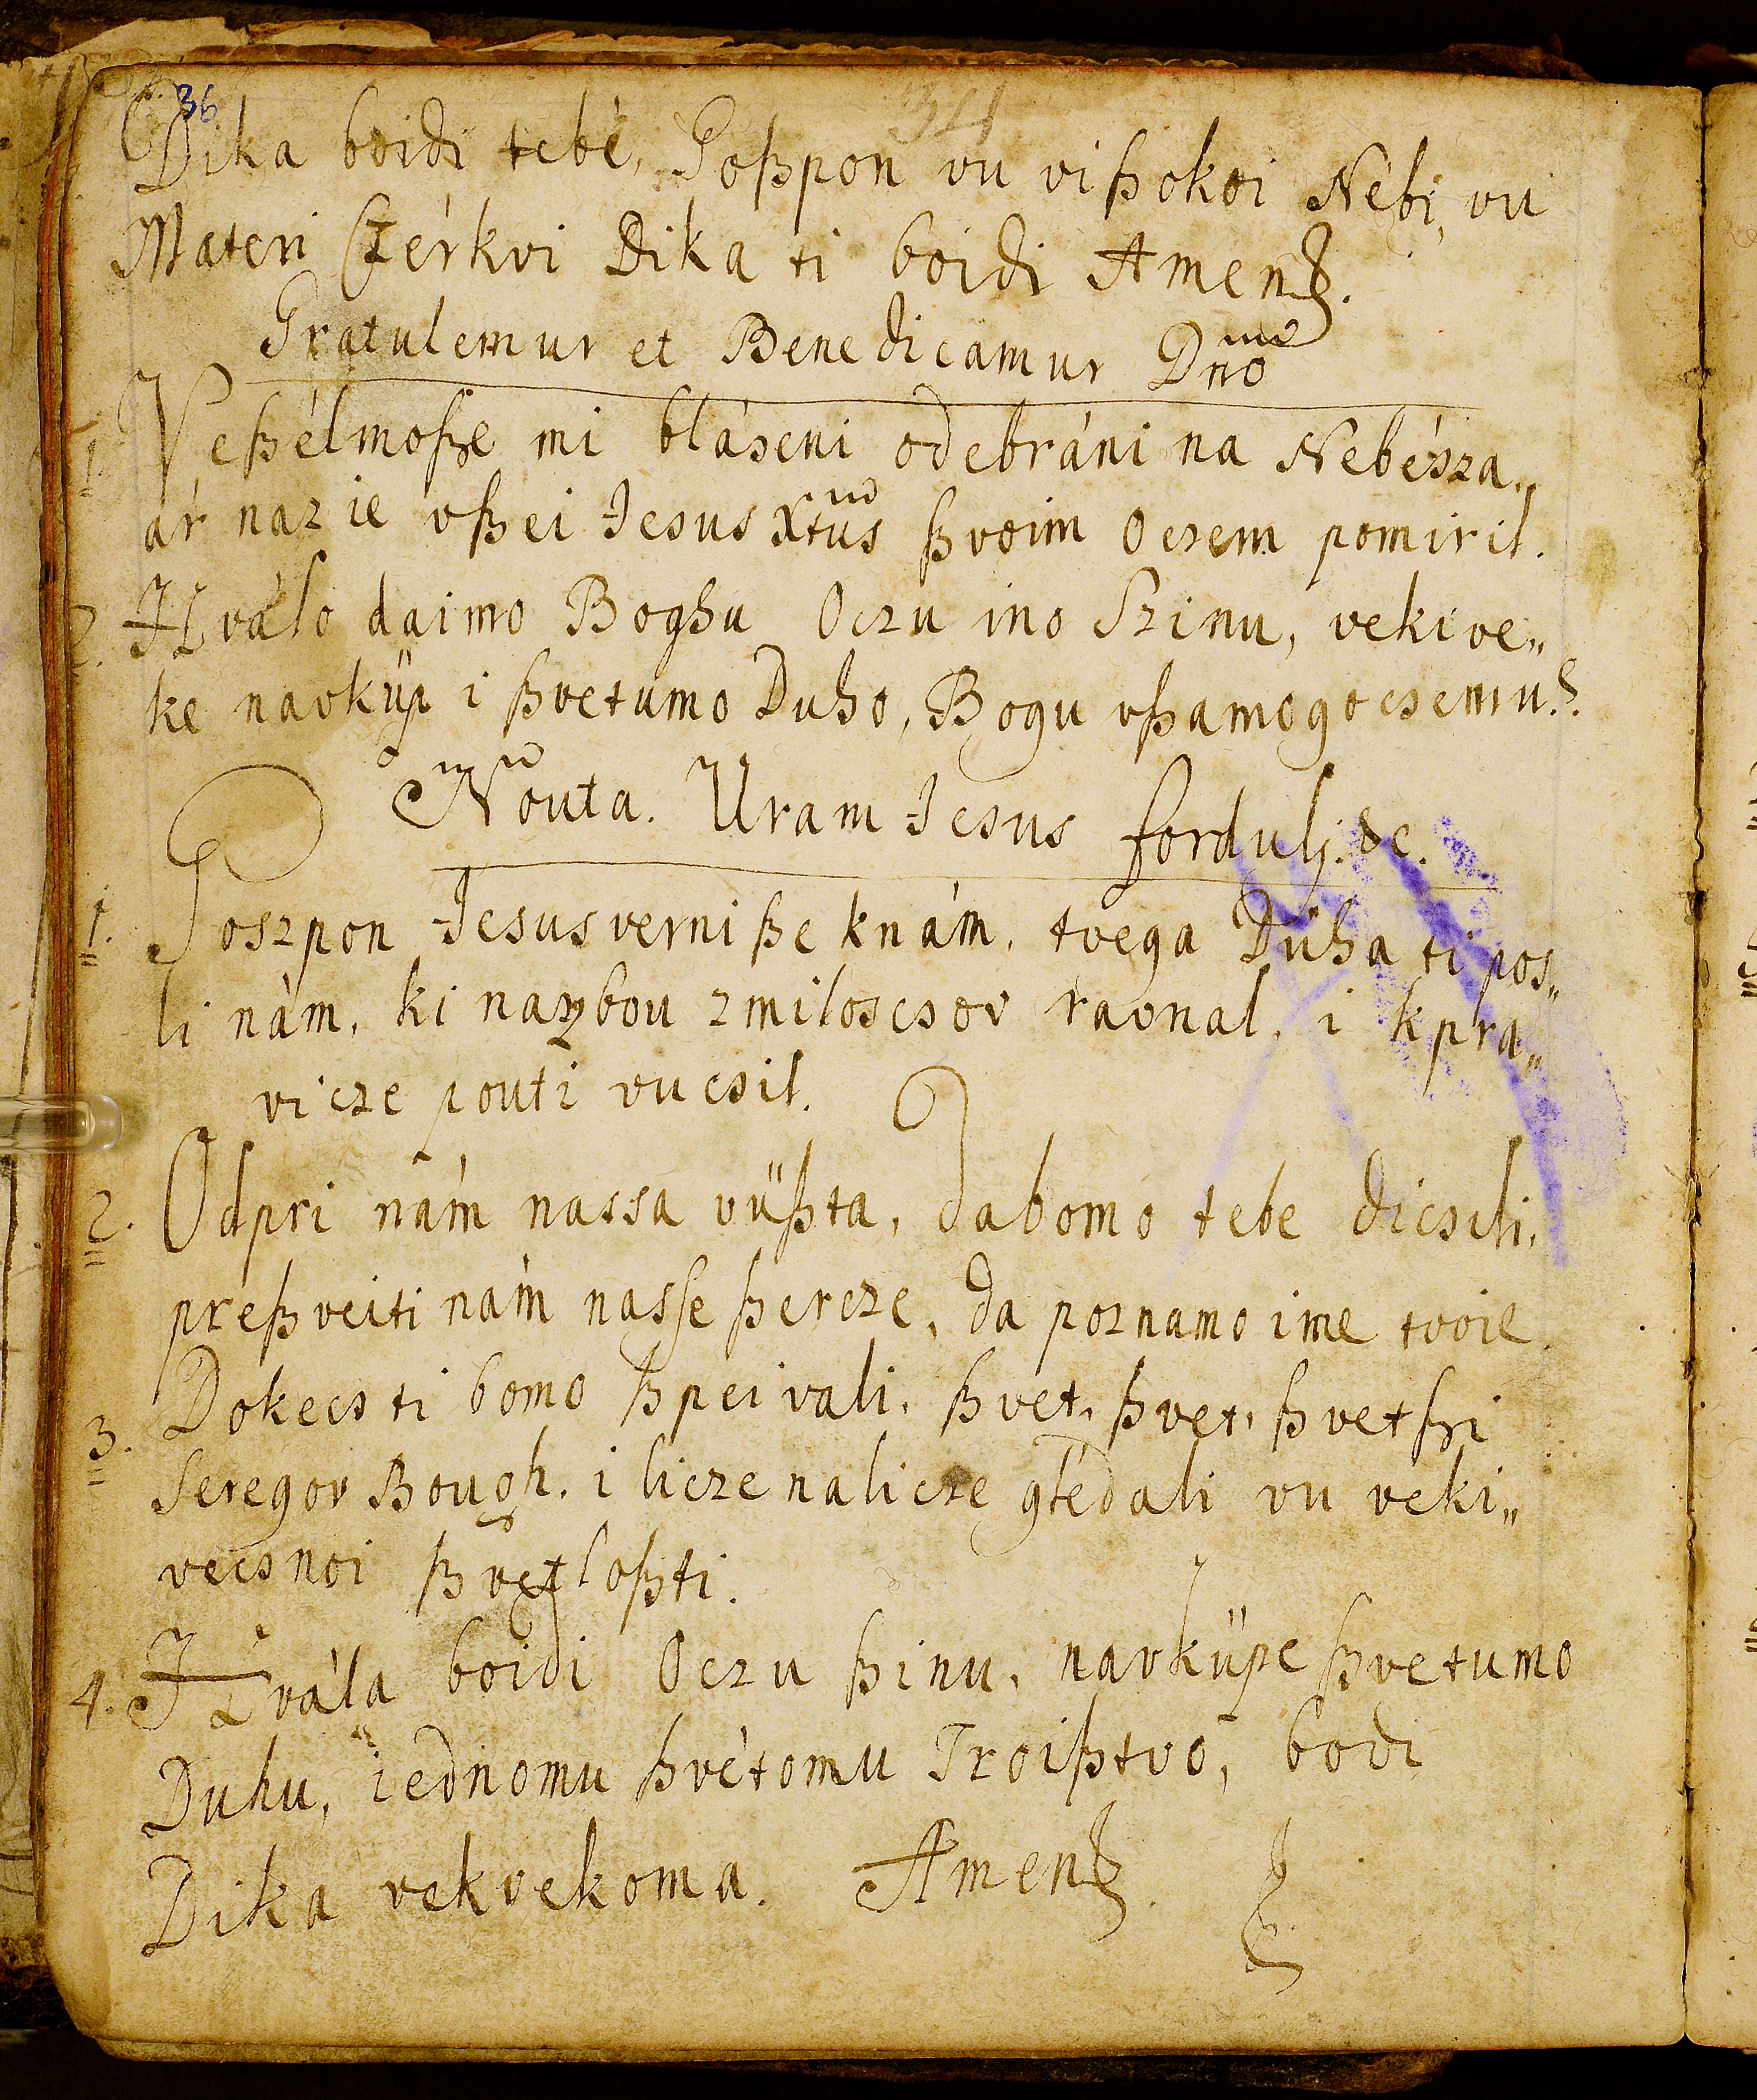 36
34
Dika boidi tebé, Goßpon vu vißokoi Nébi, vu
Materi Czérkvi Dika ti boidi Amen.
Gratulemur et Benedicamur Dno
1. Veßélmoße mi bláseni odebráni na Nebésza.
ár naz ie vßei Jesus Xtus ßvoim Oczem pomiril.
2. Hválo daimo Boghu Oczu ino Szinu, veki ve„
ke navküp i ßvetumo Duho, Bogu vßamogocsemu.
Nouta. Uram Jesus fordulj. &c.
1. Goszpon Jesus verni ße knám, tvega Duha ti pos„
li nám, ki naz bou zmiloscsov ravnal, i kpra„
vicze pouti vucsil.
2. Odpri nám nassa vüßta, dabomo tebe dicsili,
preßveiti nám nasse ßercze, da poznamo ime tvoie.
3. Dokecs ti bomo ßpeivali, ßvet, ßvet, ßvetßi
Seregov Bough, i licze nalicze glédali vu veki„
vecsnoi ßvetloßti.
4. Hvála boidi Oczu ßinu, navküpe ßvetumo
Duhu, iednomu ßvétomu Troißtvo, bodi
Dika vekvekoma. Amen.